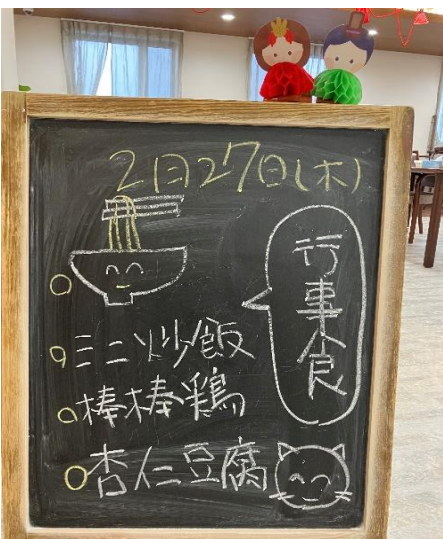 2月27日(木)
行事食
ミニ炒飯
棒棒鶏
杏仁豆腐